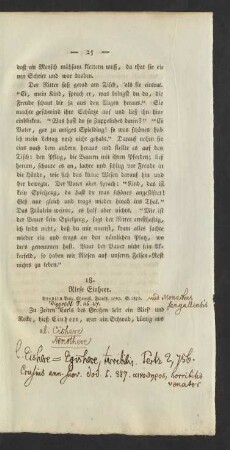 — 25 —
daß ein Mensch mühsam klettern muß, da that sie ein
ein Schritt und war droben.
Der Ritter saß grad am Tisch, als sie eintrat.
"Ei, mein Kind, sprach er, was bringst du da, die
Freude schaut dir ja aus den Augen heraus." Sie
machte geschwind ihre Schürze auf und ließ ihn hin-
einblicken. "Was hast du so Zappeliches darin?" "Ei
Vater, gar zu artiges Spielding! so was schönes hab
ich mein Lebtag noch nicht gehabt." Darauf nahm sie
eins nach dem andern heraus und stellte es auf den
Tisch: den Pflug, die Bauern mit ihren Pferden; lief
herum, schaute es an, lachte und schlug vor Freude in
die Hände, wie sich das kleine Wesen darauf hin und
her bewegte. Der Vater aber sprach: "Kind, das ist
kein Spielzeug, da hast du was schönes angestiftet!
Geh nur gleich und trags wieder hinab ins Thal."
Das Fräulein weinte, es half aber nichts. "Mir ist
der Bauer kein Spielzeug, sagt der Ritter ernsthaftig,
ich leids nicht, daß du mir murrst, kram alles sachte
wieder ein und trags an den nämlichen Platz, wo
du's genommen hast. Baut der Bauer nicht sein Ak-
kerfeld, so haben wir Riesen auf unserm Felsen-Nest
nichts zu leben."
18.
Riese Einheer.
Zu Zeiten Karls des Großen lebt' ein Ries' und
Recke, hieß Einheer, war ein Schwab, bürtig aus
al. Eishere
= Egishere, terribilis. Pertz 2, 756.